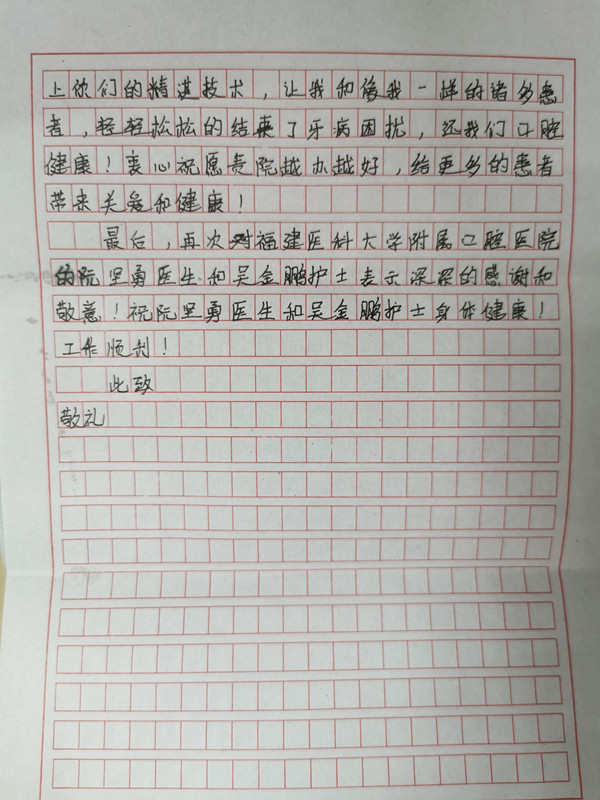 上你们的精湛技术，让我和像我一样的诸多患
者，轻轻松松的结束了牙病困扰，还我们口腔
健康！衷心祝愿贵院越办越好，给更多的患者
带来关爱和健康！
最后，再次对福建医科大学附属口腔医院
的阮坚勇医生和吴金鹏护士表示深深的感谢和
敬意！祝阮坚勇医生和吴金鹏护士身体健康！
工作顺利！
此致
敬礼